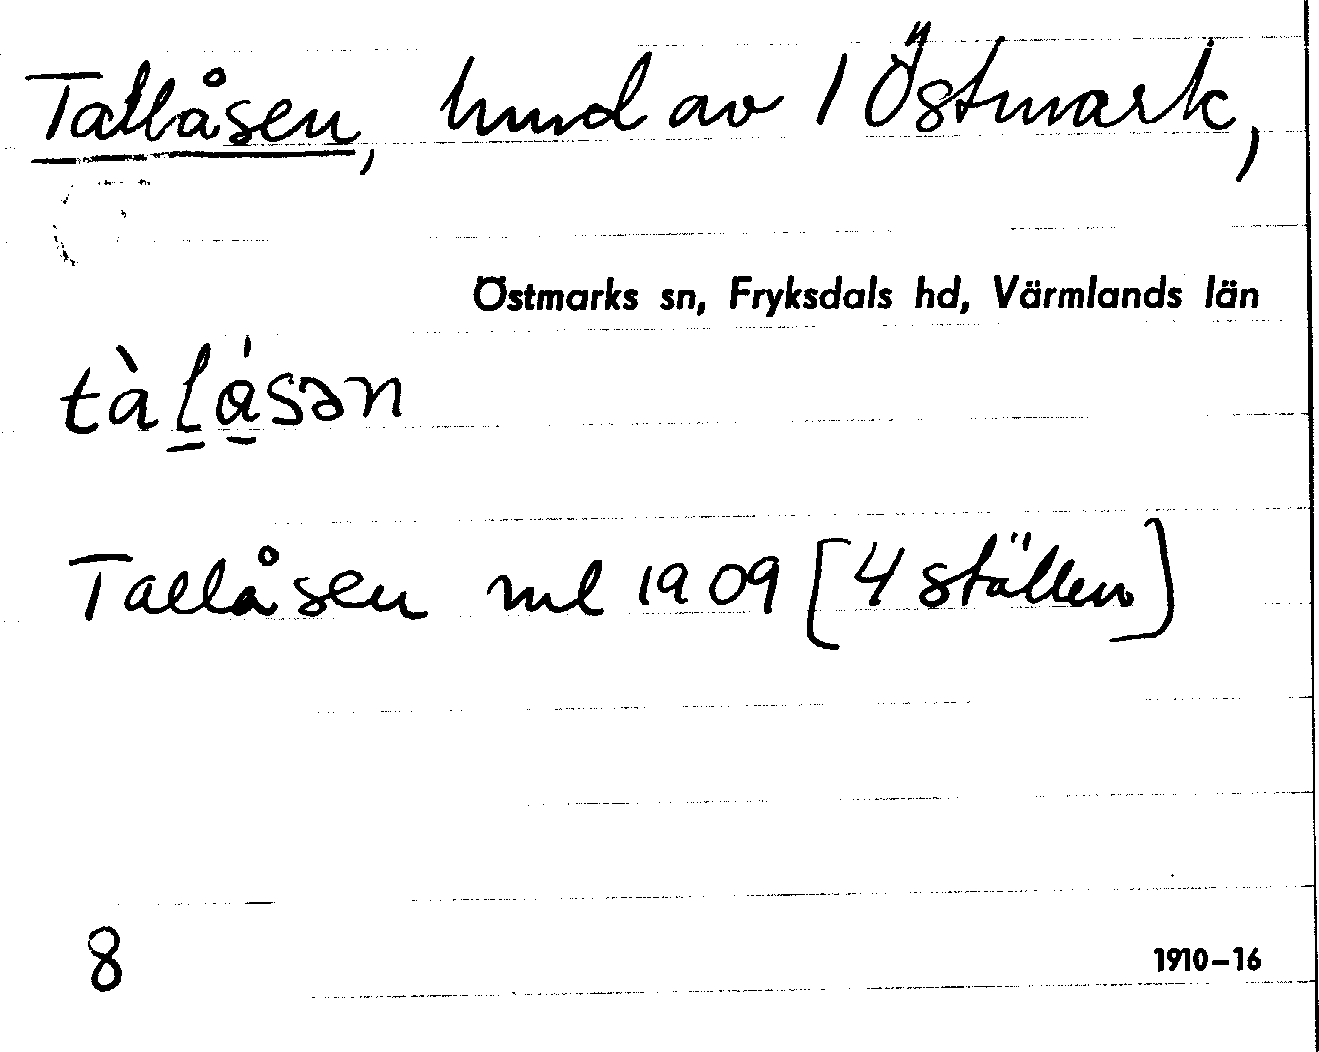 Tallåsen, hmd av 1 Östmark,
Östmarks sn, Fryksdals hd, Värmlands län
tàl̠ǻ̠sən
Tallåsen ml 1909 [4 ställen]
8
1910–16